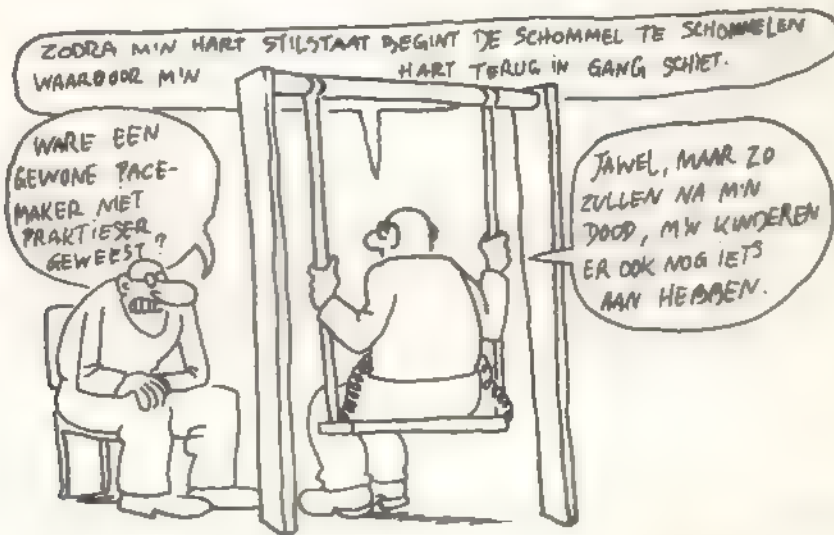 ZODRA M'N HART STILSTAAT BEGINT DE SCHOMMEL TE SCHOMMELEN
WAARDOOR M'N HART TERUG IN GANG SCHIET.
WARE EEN
GEWONE PACE-
MAKER NIET
PRAKTIESER
GEWEEST?
JAWEL, MAAR ZO
ZULLEN NA M'N
DOOD, M'N KINDEREN
ER OOK NOG IETS
AAN HEBBEN.